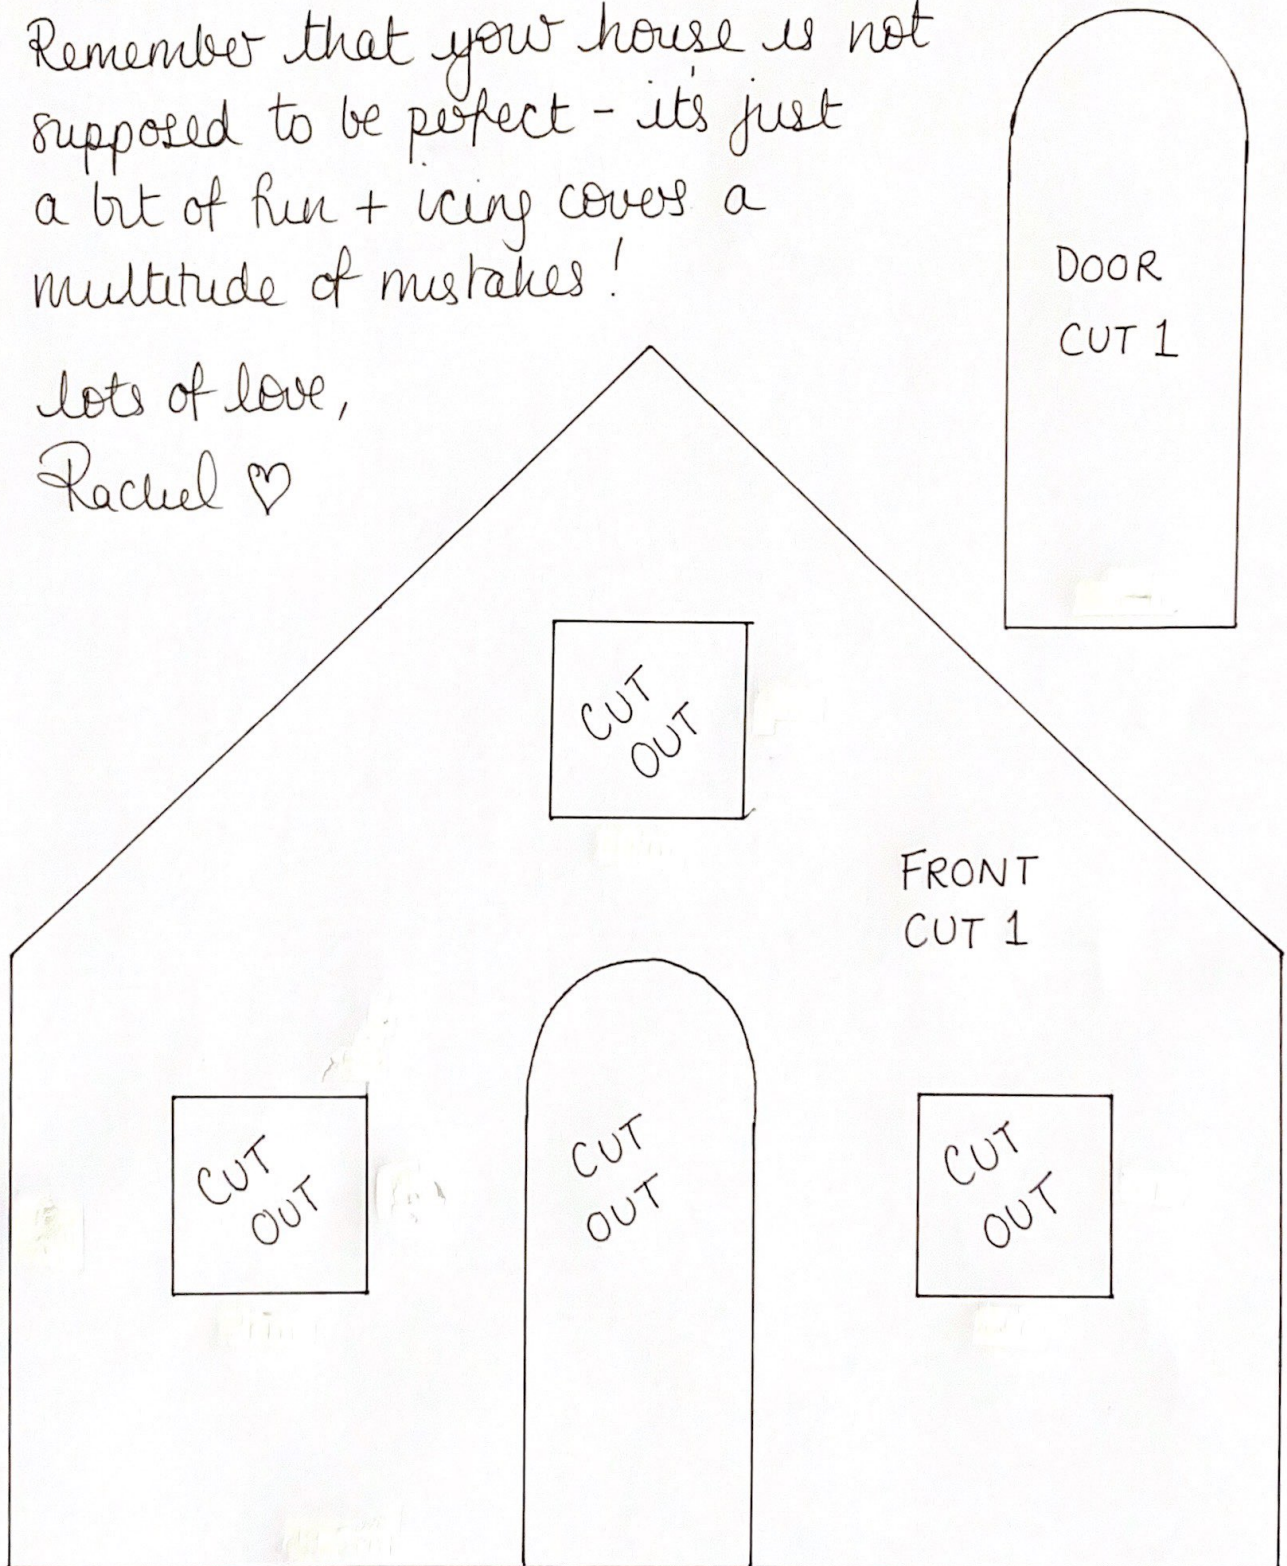 Remember that your house is not
supposed to be perfect - it's just
a bit of fun + icing covers a
multitude of mistakes!
lots of love,
Rachel ♡
DOOR
CUT 1
CUT
OUT
FRONT
CUT 1
CUT
OUT
CUT
OUT
CUT
OUT